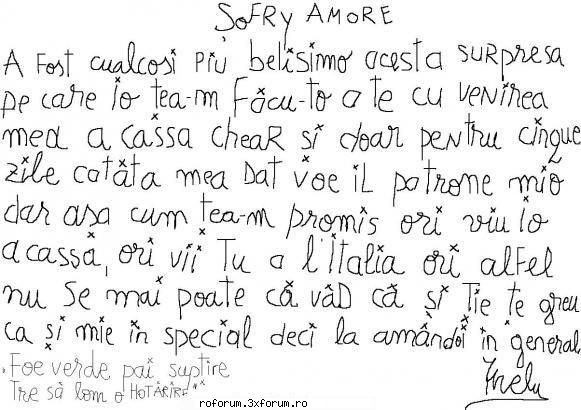 SOFRY AMORE
A FOST cualcosi piu belisimo acesta SURPRESA
pe care io tea-m Făcu-to a te cu VENIREA
mea a cassa chear si doar pentru cinque
zile catăta mea Dat voe il patrone mio
dar asa cum tea-m promis ori viu io
acassa, ori vii Tu a l'italia ori alfel
nu se mai poate că văd că si Tie te greu
ca si mie in special deci la amăndoi in general
Foe verde pai suptire
Tre să lom o HOTĂRÎRE
Inelu
roforum.3xforum.ro